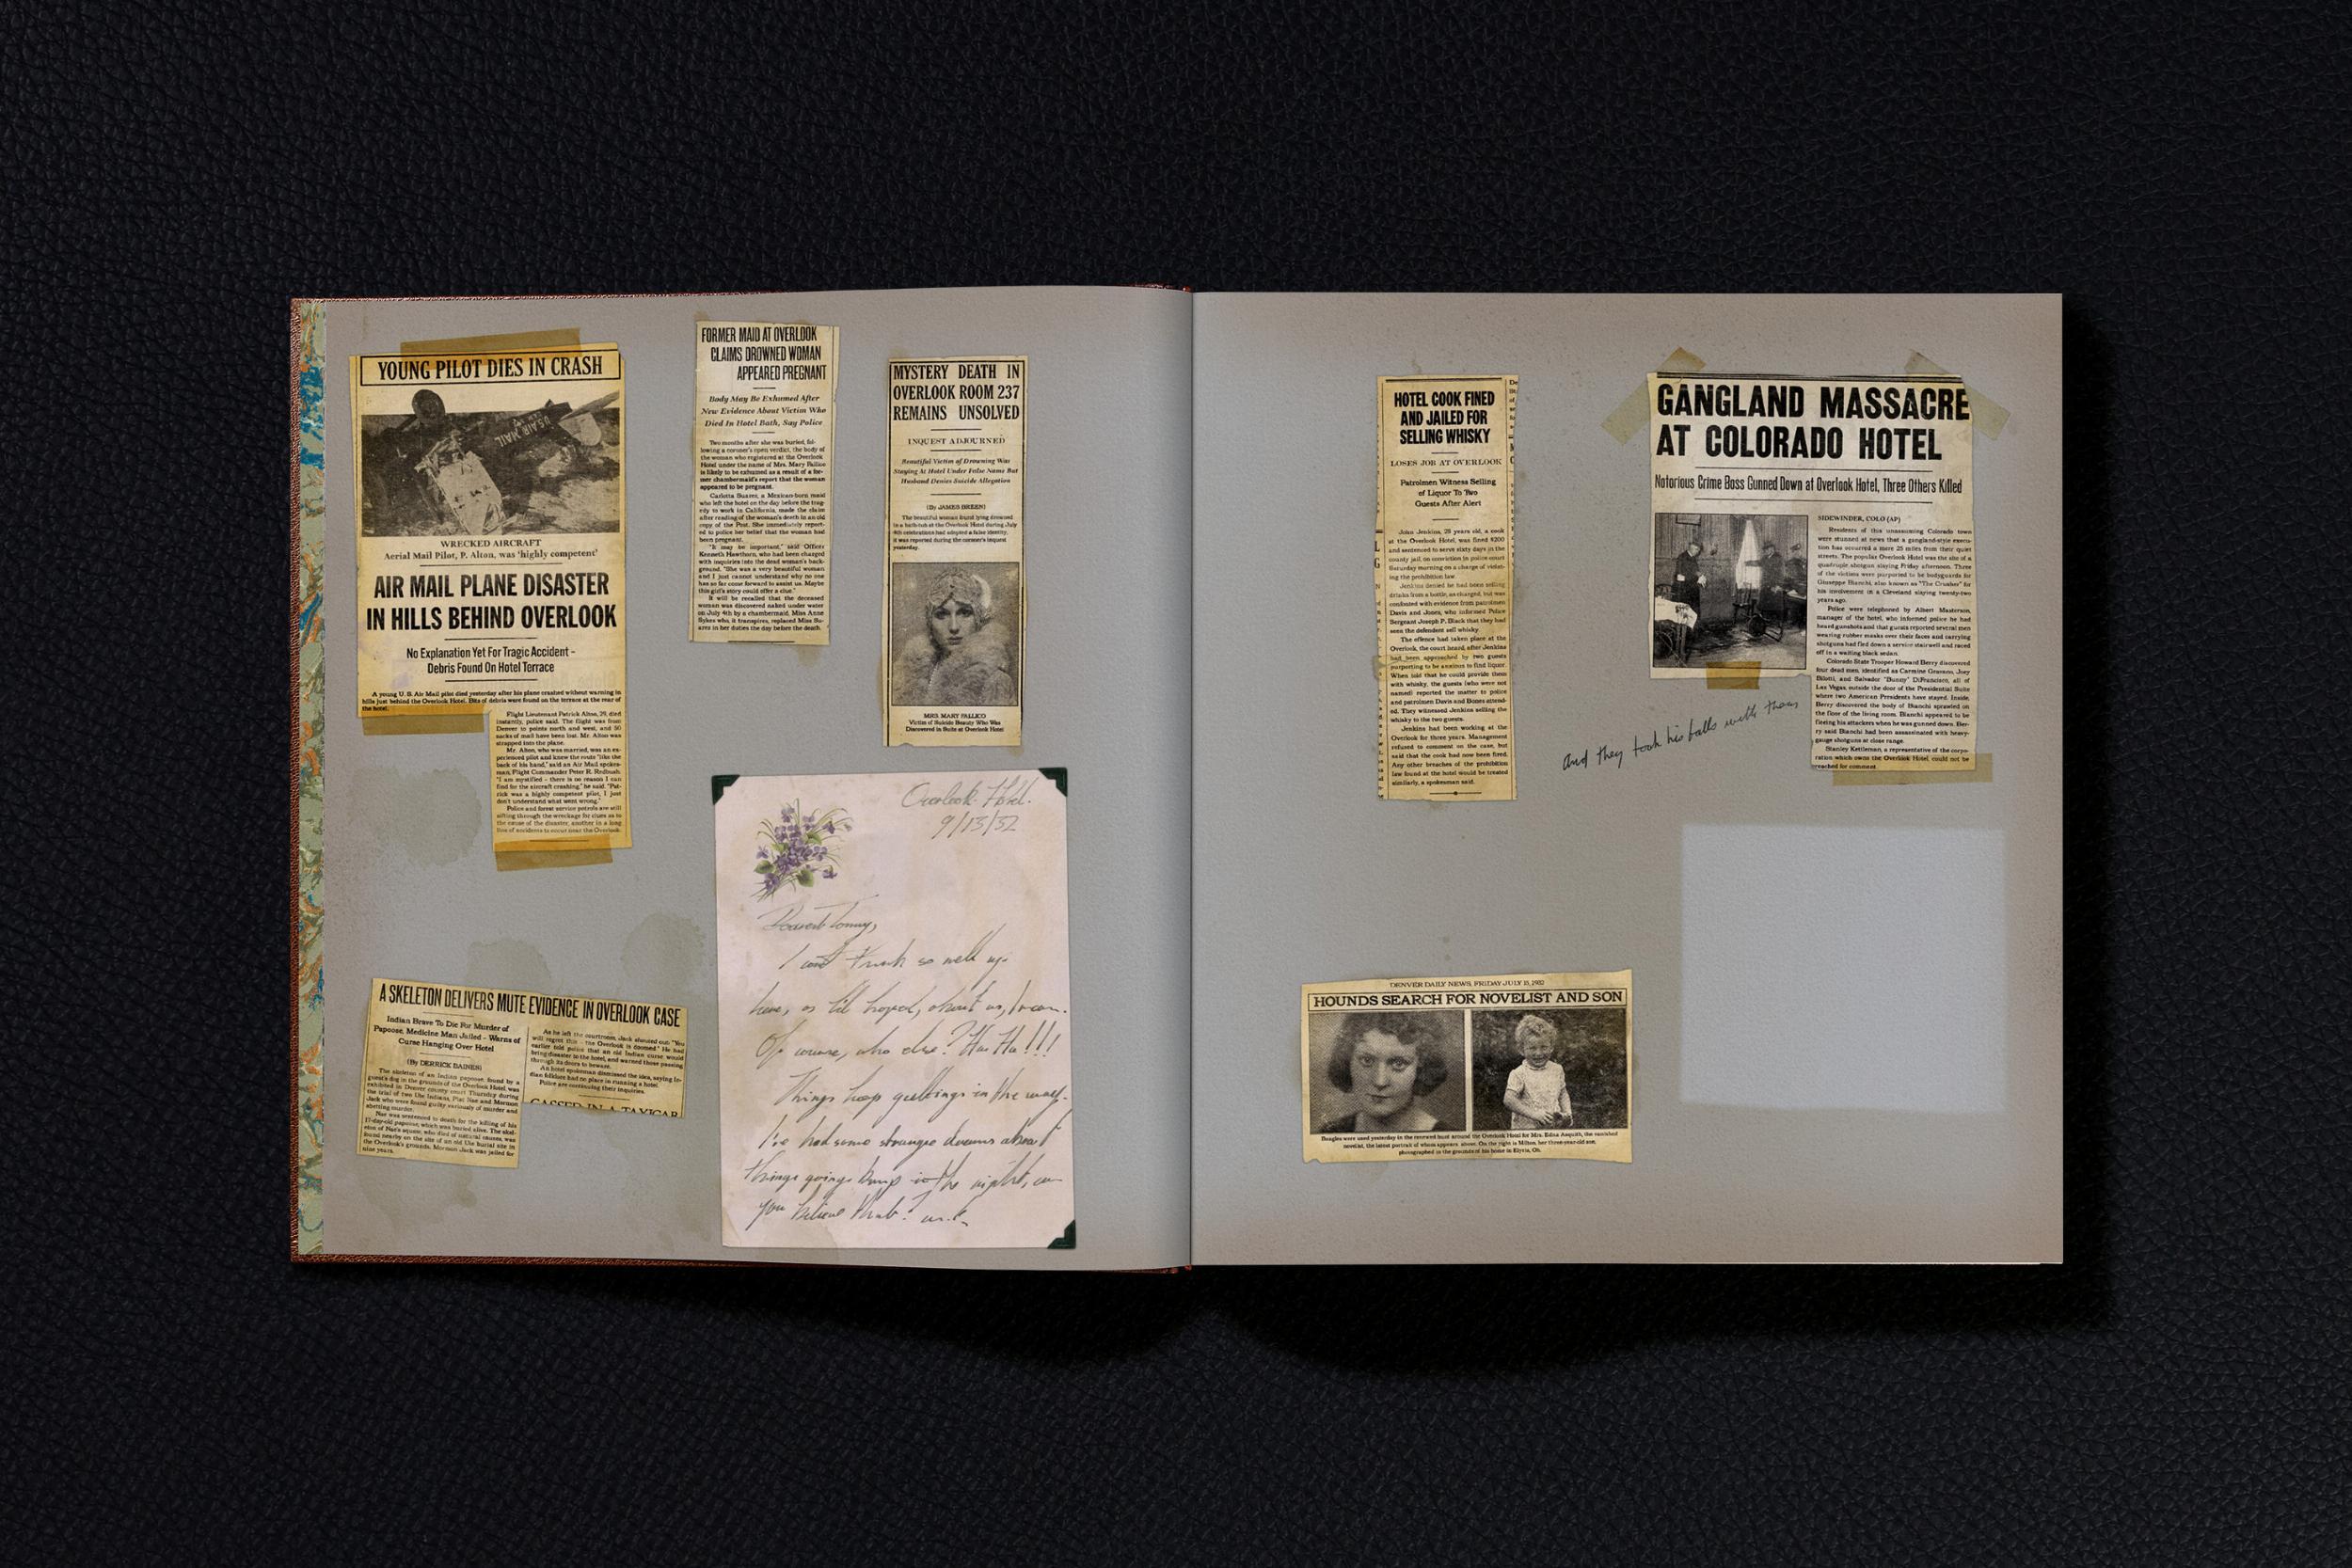 YOUNG PILOT DIES IN CRASH
U.S. AIR MAIL
WRECKED AIRCRAFT
Aerial Mail Pilot, P. Alton, was 'highly competent'
AIR MAIL PLANE DISASTER
IN HILLS BEHIND OVERLOOK
No Explanation Yet For Tragic Accident -
Debris Found On Hotel Terrace
A young U. S. Air Mail pilot died yesterday after his plane crashed without warning in
hills just behind the Overlook Hotel. Bits of debris were found on the terrace at the rear of
the hotel.
Flight Lieutenant Patrick Alton, 29, died
instantly, police said. The flight was from
Denver to points north and west, and 50
sacks of mail have been lost. Mr. Alton was
strapped into the plane.
Mr. Alton, who was married, was an ex-
perienced pilot and knew the route "like the
back of his hand," said an Air Mail spokes-
man, Flight Commander Peter R. Redbush.
"I am mystified - there is no reason I can
find for the aircraft crashing," he said. "Pat-
rick was a highly competent pilot, I just
don't understand what went wrong."
Police and forest service patrols are still
sifting through the wreckage for clues as to
the cause of the disaster, another in a long
line of accidents to occur near the Overlook.
FORMER MAID AT OVERLOOK
CLAIMS DROWNED WOMAN
APPEARED PREGNANT
Body May Be Exhumed After
New Evidence About Victim Who
Died In Hotel Bath, Say Police
Two months after she was buried, fol-
lowing a coroner's open verdict, the body of
the woman who registered at the Overlook
Hotel under the name of Mrs. Mary Fallico
is likely to be exhumed as a result of a for-
mer chambermaid's report that the woman
appeared to be pregnant.
Carlotta Suarez, a Mexican-born maid
who left the hotel on the day before the trag-
edy to work in California, made the claim
after reading of the woman's death in an old
copy of the Post. She immediately report-
ed to police her belief that the woman had
been pregnant.
"It may be important," said Officer
Kenneth Hawthorn, who had been charged
with inquiries into the dead woman's back-
ground. "She was a very beautiful woman
and I just cannot understand why no one
has so far come forward to assist us. Maybe
this girl's story could offer a clue."
It will be recalled that the deceased
woman was discovered naked under water
on July 4th by a chambermaid, Miss Anne
Sykes who, it transpires, replaced Miss Su-
arez in her duties the day before the death.
MYSTERY DEATH IN
OVERLOOK ROOM 237
REMAINS UNSOLVED
INQUEST ADJOURNED
Beautiful Victim of Drowning Was
Staying At Hotel Under False Name But
Husband Denies Suicide Allegation
(By JAMES GREEN)
The beautiful woman found lying drowned
in a bath-tub at the Overlook Hotel during July
4th celebrations had adopted a false identity,
it was reported during the coroner's inquest
yesterday.
MRS. MARY FALLICO
Victim of Suicide Beauty Who Was
Discovered in Suite at Overlook Hotel
A SKELETON DELIVERS MUTE EVIDENCE IN OVERLOOK CASE
Indian Brave To Die For Murder of
Papoose, Medicine Man Jailed - Warns of
Curse Hanging Over Hotel
(By DERRICK BAINES)
The skeleton of an Indian papoose, found by a
guest's dog in the grounds of the Overlook Hotel, was
exhibited in Denver county court Thursday during
the trial of two Ute Indians, Flat Nae and Mormon
Jack who were found guilty variously of murder and
abetting murder.
Nae was sentenced to death for the killing of his
17-day-old papoose, which was buried alive. The skel-
eton of Nae's squaw, who died of natural causes, was
found nearby on the site of an old Ute burial site in
the Overlook's grounds. Mormon Jack was jailed for
nine years.
As he left the courtroom, Jack shouted out: "You
will regret this - the Overlook is doomed." He had
earlier told police that an old Indian curse would
bring disaster to the hotel, and warned those passing
through its doors to beware.
An hotel spokesman dismissed the idea, saying In-
dian folklore had no place in running a hotel.
Police are continuing their inquiries.
GASSED IN A TAXICAB
Overlook Hotel.
9/13/32
Dearest Tommy,
I can't think so well up
here, as I'd hoped, about us, I mean.
Of course, who else? Ha Ha!!!
Things keep getting in the way.
I've had some strange dreams about
things going bump in the night, can
you believe that?
HOTEL COOK FINED
AND JAILED FOR
SELLING WHISKY
LOSES JOB AT OVERLOOK
Patrolmen Witness Selling
of Liquor To Two
Guests After Alert
John Jenkins, 28 years old, a cook
at the Overlook Hotel, was fined $200
and sentenced to serve sixty days in the
county jail on conviction in police court
Saturday morning on a charge of violat-
ing the prohibition law.
Jenkins denied he had been selling
drinks from a bottle, as charged, but was
confronted with evidence from patrolmen
Davis and Jones, who informed Police
Sergeant Joseph P. Black that they had
seen the defendent sell whisky.
The offence had taken place at the
Overlook, the court heard, after Jenkins
had been approached by two guests
purporting to be anxious to find liquor.
When told that he could provide them
with whisky, the guests (who were not
named) reported the matter to police
and patrolmen Davis and Bones attend-
ed. They witnessed Jenkins selling the
whisky to the two guests.
Jenkins had been working at the
Overlook for three years. Management
refused to comment on the case, but
said that the cook had now been fired.
Any other breaches of the prohibition
law found at the hotel would be treated
similarly, a spokesman said.
GANGLAND MASSACRE
AT COLORADO HOTEL
Notorious Crime Boss Gunned Down at Overlook Hotel, Three Others Killed
SIDEWINDER, COLO (AP)
Residents of this unassuming Colorado town
were stunned at news that a gangland-style execu-
tion has occurred a mere 25 miles from their quiet
streets. The popular Overlook Hotel was the site of a
quadruple shotgun slaying Friday afternoon. Three
of the victims were purported to be bodyguards for
Giuseppe Bianchi, also known as "The Crusher" for
his involvement in a Cleveland slaying twenty-two
years ago.
Police were telephoned by Albert Masterson,
manager of the hotel, who informed police he had
heard gunshots and that guests reported several men
wearing rubber masks over their faces and carrying
shotguns had fled down a service stairwell and raced
off in a waiting black sedan.
Colorado State Trooper Howard Berry discovered
four dead men, identified as Carmine Gravano, Joey
Bilotti, and Salvador "Bunny" DiFrancisco, all of
Las Vegas, outside the door of the Presidential Suite
where two American Presidents have stayed. Inside,
Berry discovered the body of Bianchi sprawled on
the floor of the living room. Bianchi appeared to be
fleeing his attackers when he was gunned down. Ber-
ry said Bianchi had been assassinated with heavy-
gauge shotguns at close range.
Stanley Kettleman, a representative of the corpo-
ration which owns the Overlook Hotel, could not be
reached for comment.
and they took his balls with them
DENVER DAILY NEWS, FRIDAY JULY 15, 1932
HOUNDS SEARCH FOR NOVELIST AND SON
Beagles were used yesterday in the renewed hunt around the Overlook Hotel for Mrs. Edna Asquith, the vanished
novelist, the latest portrait of whom appears above. On the right is Milton, her three-year-old son,
photographed in the grounds of his home in Elyria, Oh.